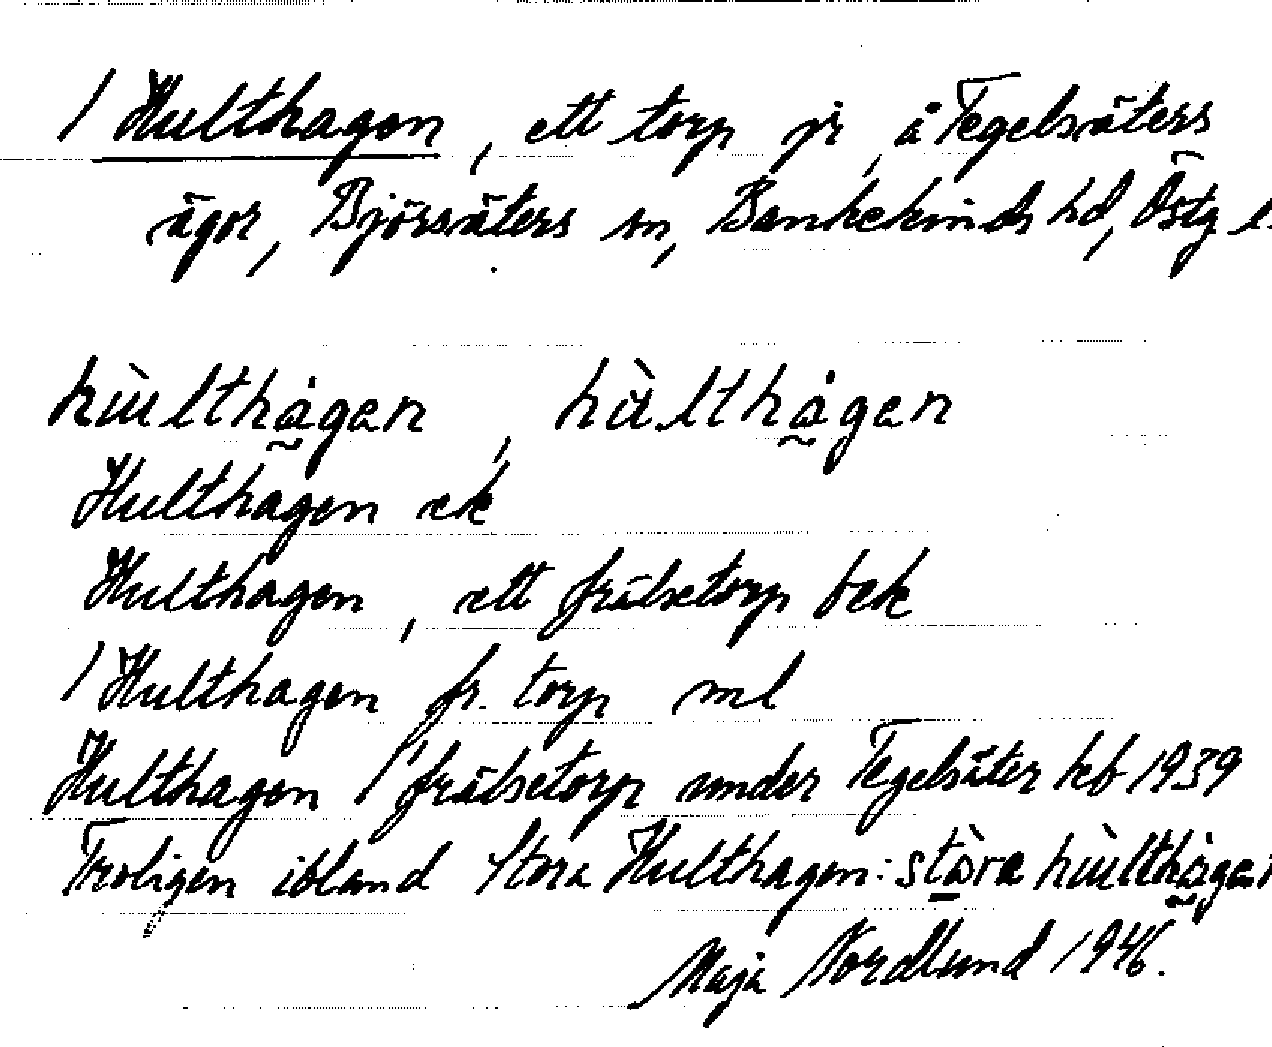 / Hulthagen, ett torp på, å Tegelsäters
ägor, Björsäters sn, Bankekinds hd, Östg l.
hùlthå̰gen, hùlthå̰gen
Hulthagen ek
Hulthagen, ett frälsetorp bek
/ Hulthagen fr. torp ml
Hulthagen / frälsetorp under Tegelsäter kb 1939
Troligen ibland Stora Hulthagen: stòra hùlthå̰gen
Maja Nordlund 1946.